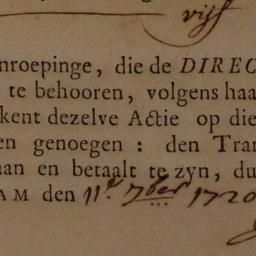 vijf
nroepinge, die de DIREC
te behooren, volgens haa
kent dezelve Actie op die
en genoegen : den Tran
aan en betaalt te zyn, du
AM den 11e. 7ber 1720